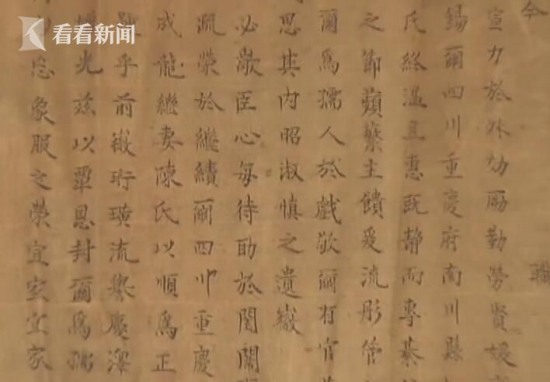 看看新闻
今
宣力於外劬勵勤勞賢媛
錫爾四川重慶府南川縣
氏終溫且惠既靜而專綦
之節蘋蘩主饋爰流彤管
爾爲孺人於戲敬爾有官
思其內昭淑慎之遺徽
必歡臣心每待助於閨闈
疏榮於繼續爾四川重慶
成龍繼妻陳氏以順爲正
乎前徽珩璜流譽慶澤
光茲以覃恩封爾爲孺
象服之榮宜室宜家